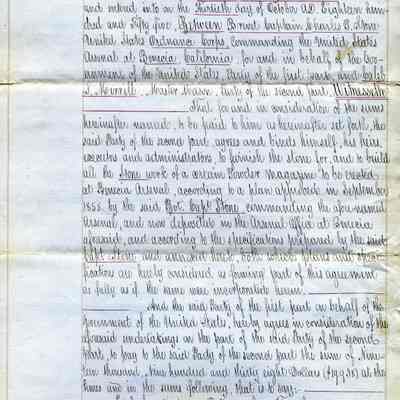 and entered into on the Thirtieth day of October A.D. Eighteen hun-
dred and Fifty five, Between Brevet Captain Charles P. Stone
United States Ordnance Corps, Commanding the United States
Arsenal at Benicia California, for and in behalf of the Gov-
ernment of the United States, Party of the first part, and Caleb
S. Merrell, Master Mason, Party of the second part, Witnesseth:
That for and in consideration of the sums
hereinafter named, to be paid to him as hereinafter set forth, the
said Party of the second part, agrees and binds himself, his heirs
executors and administrators to furnish the Stone for, and to build
all the Stone work of a certain Powder magazine to be erected
at Benicia Arsenal, according to a plan approved in September
1855, by the said Bvt. Capt. Stone, commanding the aforenamed
Arsenal, and now deposited in the Arsenal Office at Benicia
aforesaid, and according to the specifications prepared by the said
Capt. Stone and annexed hereto, both which plans and speci-
fications are hereby considered as forming part of this agreement
as fully as if the same were incorporated herein.
And the said Party of the first part on behalf of the
Government of the United States, hereby agrees in consideration of the
aforesaid undertakings on the part of the said Party of the second
part, to pay to the said Party of the second part the sum of Nine-
teen thousand, Nine hundred and thirty eight Dollars ($19,938) at the
times and in the sums following, that is to say: